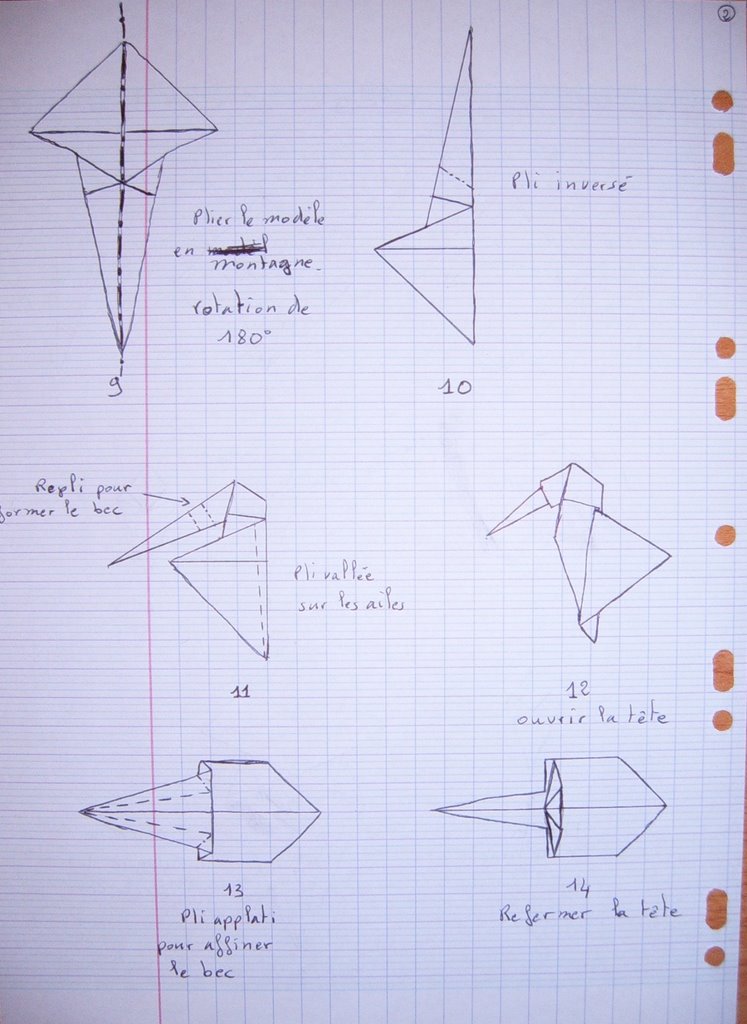 2
Plier le modèle
en
montagne.
rotation de
180°
9
Pli inversé
10
Repli pour
former le bec
Pli vallée
sur les ailes
11
12
ouvrir la tête
13
Pli applati
pour affiner
le bec
14
Refermer la tête